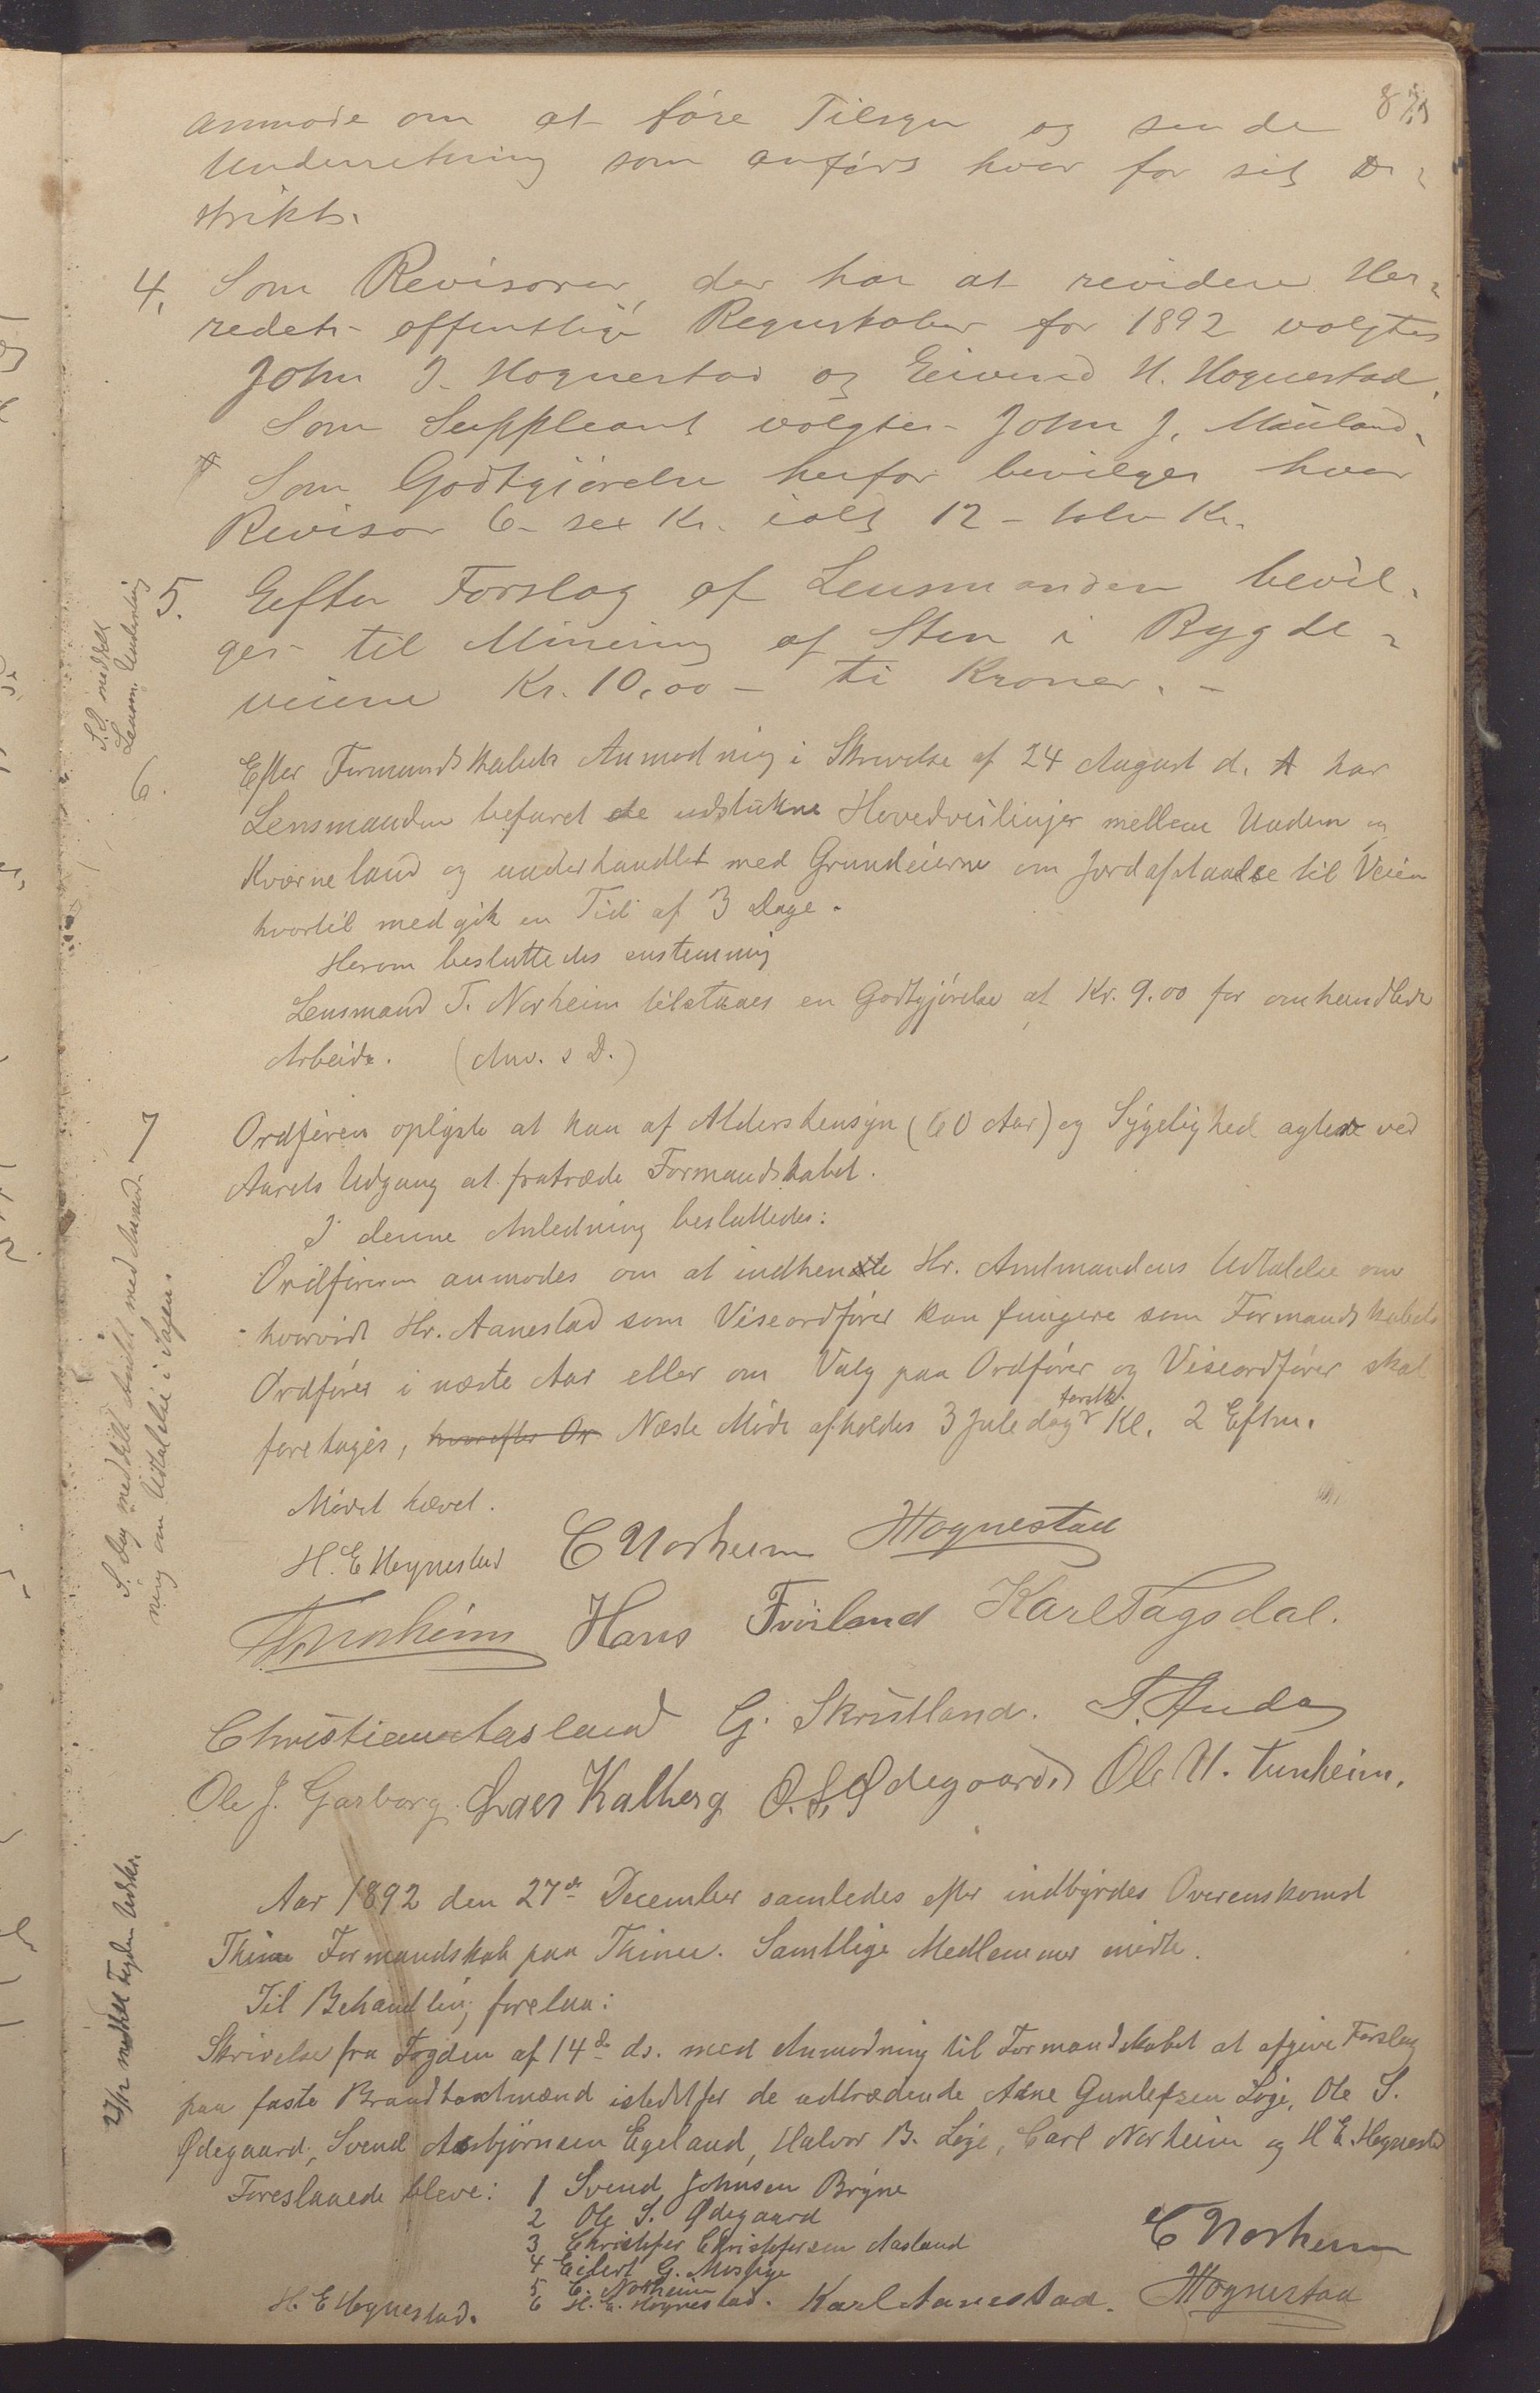 anmode om at føre Tilsyn og sende
Underretning som anførs hver for sit Di-
strikt.
4. Som Revisorer, der har at revidere Her-
redets offentlige Regnskaber for 1892 valgtes
John J. Hognestad og Eivind H. Hognestad.
Som Suppleant valgtes John J. Mauland.
Som Godtgjørelse herfor bevilges hver
Revisor 6 - sex Kr. ialt 12 - tolv Kr.
5. Efter Forslag af Lensmanden bevil-
ges til Minering af Sten i Bygde-
veiene Kr. 10,00 - ti Kroner. -
S.D. meddelt
Lensm. Underretning
6. Efter Formandskabets Anmodning i Skrivelse af 24 August d. A har
Lensmanden befaret de udstukne Hovedveilinjer mellem Undem og
Kværneland og underhandlet med Grundeierne om Jordafstaaelse til Veien
hvortil medgik en Tid af 3 Dage.
Herom besluttedes enstemmig
Lensmand T. Norheim tilstaaes en Godtgjørelse af Kr. 9.00 for omhandlede
Arbeide. (Anv. s D.)
7 Ordføren oplyste at han af Aldershensyn (60 Aar) og Sygelighed agtede ved
Aarets Udgang at fratræde Formandskabet.
I denne Anledning besluttedes:
Ordføreren anmodes om at indhente Hr. Amtmandens Udtalelse om
hvorvidt Hr. Aanestad som Viseordfører kan fungere som Formandskabets
Ordfører i næste Aar eller om Valg paa Ordfører og Viseordfører skal
foretages, hvorefter Or Næste Møde afholdes 3 Juledag Kl. 2 Efthm.
S. Dag meddelt Amtet med Anmod-
ning om Udtalelse i Sagen
Mødet hævet.
H. E Hognestad C Norheim JHognestad
T. Norheim Hans Frøiland Karl Fagsdal.
Christian Aasland G. Skretland. T. Anda
Ole J. Garborg. Lars Kalberg O. S. Ødegaard. Ole H. Tunheim.
Aar 1892 den 27de December samledes efter indbyrdes Overenskomst
Thime Formandskab paa Thime. Samtlige Medlemmer mødte.
Til Behandling forelaa:
Skrivelse fra Fogden af 14de ds. med Anmodning til Formandskabet at afgive Forslag
paa faste Brandtaxtmænd istedetfor de udtrædende Adne Gunlefsen Løge, Ole S.
Ødegaard, Svend Asbjørnsen Egeland, Halvor B. Løge, Carl Norheim og H E. Hognestad
27/12 meddelt Fogden Udskr.
Foreslaaede bleve: 1 Svend Johnsen Bryne
2 Ole S. Ødegaard
3 Christofer Christofersen Aasland
4 Eilert G. Moslige
5 C. Norheim
6 H. E. Hognestad.
C Norheim
H. E Hognestad. Karl Aanestad. JHognestad